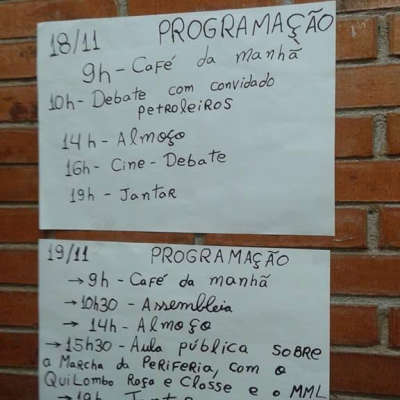 18/11 PROGRAMAÇÃO
9h - Café da manhã
10h - Debate com convidado
petroleiros
14h - Almoço
16h - Cine - Debate
19h - Jantar
19/11 PROGRAMAÇÃO
→ 9h - Café da manhã
→ 10h30 - Assembleia
→ 14h - Almoço
→ 15h30 - Aula pública sobre
a Marcha da Periferia, com o
Quilombo Raça e Classe e o MML
→ 19h - Jantar